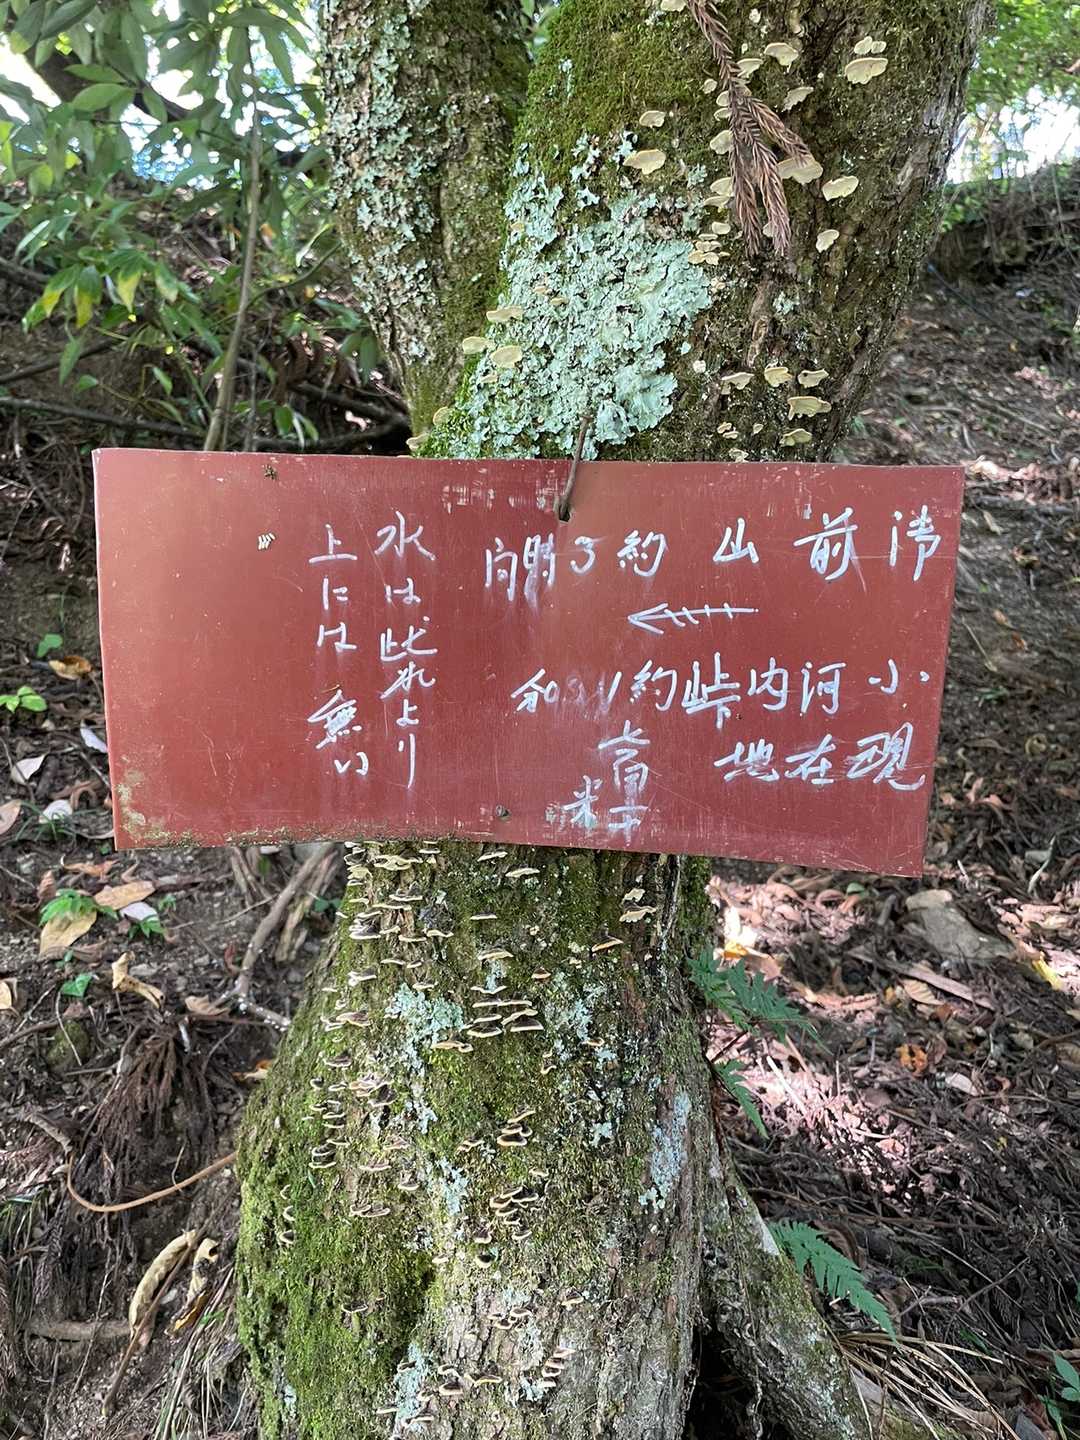 御前山 約3時間
小河内峠約
現在地
米
水は此れより
上には 無い